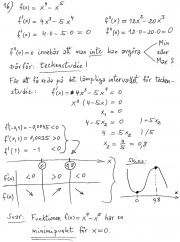 16) f(x) = x⁴ - x⁵
f'(x) = 4x³ - 5x⁴ f''(x) = 12x² - 20x³
f'(0) = 4·0 - 5·0 = 0 f''(0) = 12·0 - 20·0 = 0
f''(0) = 0 innebär att man inte kan avgöra Min eller Max?
Därför: Teckenstudie!
För att få reda på det lämpliga intervallet för tecken-
studie: f'(x) = 4x³ - 5x⁴ = 0
x³(4 - 5x) = 0
x₁ = 0
4 - 5x₂ = 0 /+5x₂
4 = 5x₂ /5
x₂ = 4/5 = 0,8
f'(-0,1) = -0,0045 < 0
f'(0,1) = 0,0035 > 0
f'(1) = -1 < 0
0 0,8 x
f'(x) < 0 > 0 < 0
f(x) ↘ ↗ ↘
Skiss:
0 0,8 x
Svar: Funktionen f(x) = x⁴ - x⁵ har en
minimipunkt för x = 0.